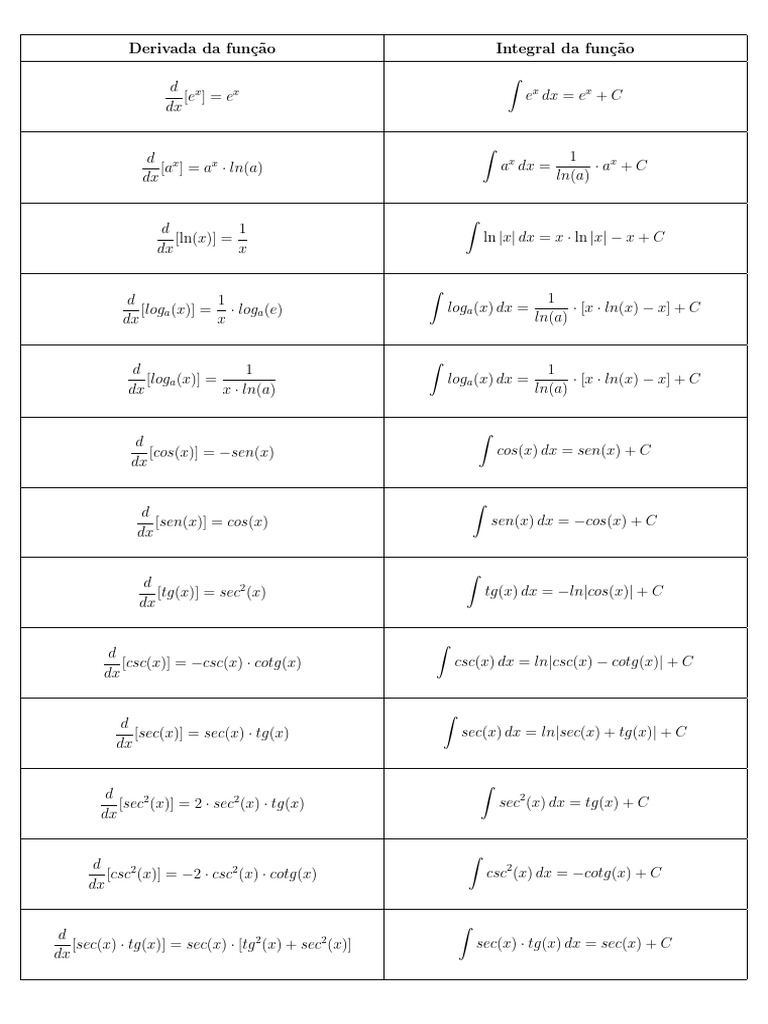 Derivada da função | Integral da função
\frac{d}{dx}[e^x] = e^x | \int e^x \, dx = e^x + C
\frac{d}{dx}[a^x] = a^x \cdot ln(a) | \int a^x \, dx = \frac{1}{ln(a)} \cdot a^x + C
\frac{d}{dx}[\ln(x)] = \frac{1}{x} | \int \ln|x| \, dx = x \cdot \ln|x| - x + C
\frac{d}{dx}[log_a(x)] = \frac{1}{x} \cdot log_a(e) | \int log_a(x) \, dx = \frac{1}{ln(a)} \cdot [x \cdot ln(x) - x] + C
\frac{d}{dx}[log_a(x)] = \frac{1}{x \cdot ln(a)} | \int log_a(x) \, dx = \frac{1}{ln(a)} \cdot [x \cdot ln(x) - x] + C
\frac{d}{dx}[cos(x)] = -sen(x) | \int cos(x) \, dx = sen(x) + C
\frac{d}{dx}[sen(x)] = cos(x) | \int sen(x) \, dx = -cos(x) + C
\frac{d}{dx}[tg(x)] = sec^2(x) | \int tg(x) \, dx = -ln|cos(x)| + C
\frac{d}{dx}[csc(x)] = -csc(x) \cdot cotg(x) | \int csc(x) \, dx = ln|csc(x) - cotg(x)| + C
\frac{d}{dx}[sec(x)] = sec(x) \cdot tg(x) | \int sec(x) \, dx = ln|sec(x) + tg(x)| + C
\frac{d}{dx}[sec^2(x)] = 2 \cdot sec^2(x) \cdot tg(x) | \int sec^2(x) \, dx = tg(x) + C
\frac{d}{dx}[csc^2(x)] = -2 \cdot csc^2(x) \cdot cotg(x) | \int csc^2(x) \, dx = -cotg(x) + C
\frac{d}{dx}[sec(x) \cdot tg(x)] = sec(x) \cdot [tg^2(x) + sec^2(x)] | \int sec(x) \cdot tg(x) \, dx = sec(x) + C